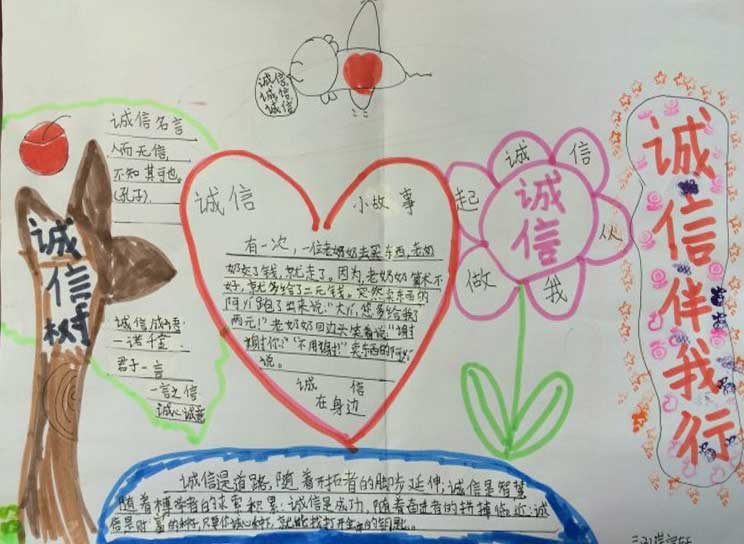 诚信
诚信
诚信
诚信名言
人而无信,
不知其可也。
(孔子)
诚信树
诚信成语:
一诺千金
君子一言
一言之信
诚心诚意
诚信 小故事
有一次,一位老奶奶去买东西,老奶
奶交了钱,就走了。因为老奶奶算术不
好,就多给了二元钱。突然卖东西的
阿姨追了出来说:“大
两元!”老奶奶回过头笑着说:“谢
谢你!”“不用谢!”卖东西的阿姨
说。
诚 信
在身边
诚信从我做起
诚信
诚信伴我行
诚信是道路,随着开拓者的脚步延伸,诚信是智慧
随着博学者的求索积累,诚信是成功,随着奋进者的拼搏临近;诚
信是财富的种子,只要你诚心种下,就能找打开金库的钥匙。